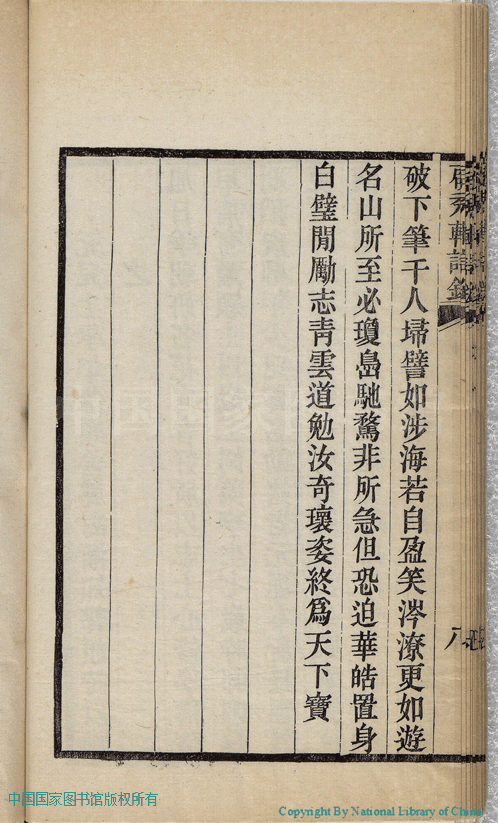 破下筆千人埽譬如涉海若自盈笑涔潦更如遊
名山所至必瓊島馳騖非所急但恐迫華皓置身
白璧閒勵志青雲道勉汝奇瓌姿終爲天下寶
中国国家图书馆版权所有
Copyright By National Library of China